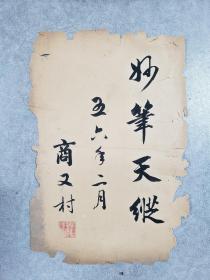 妙筆天縱
五六年二月
商又村